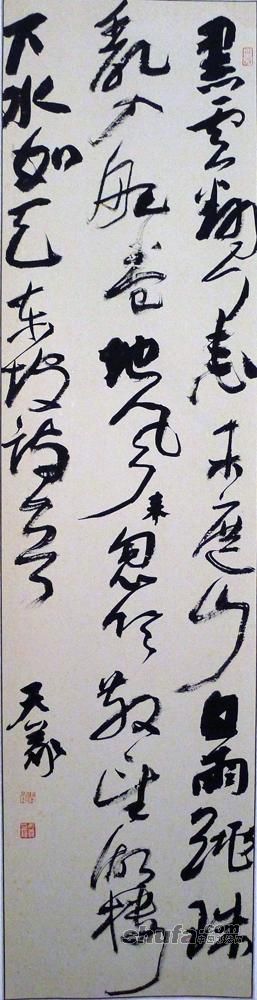 黑雲翻墨未遮山白雨跳珠
亂入船卷地風来忽吹散望湖樓
下水如天东坡诗
shufa.com